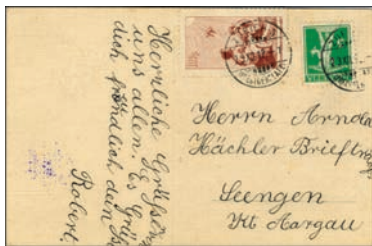 Herzliche Grüsse
uns allen. Es Grüsst
dich freundlich dein
Robert.
Herrn Arnold
Hächler Briefträger
Seengen
Kt Aargau